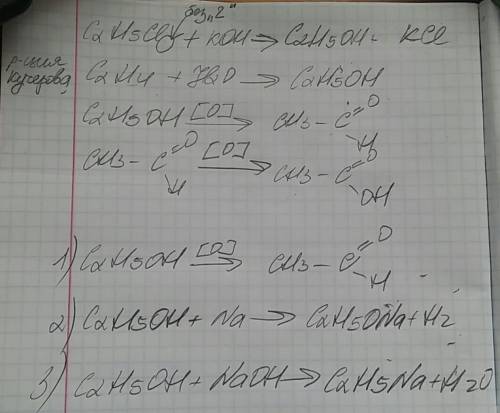 без „2"
C2H5Cl + KOH → C2H5OH + KCl
р-ция Кучерова
C2H4 + H2O → C2H5OH
C2H5OH [O] → CH3 - C =O H
CH3 - C =O H [O] → CH3 - C =O OH
1) C2H5OH [O] → CH3 - C =O H
2) C2H5OH + Na → C2H5ONa + H2
3) C2H5OH + NaOH → C2H5Na + H2O